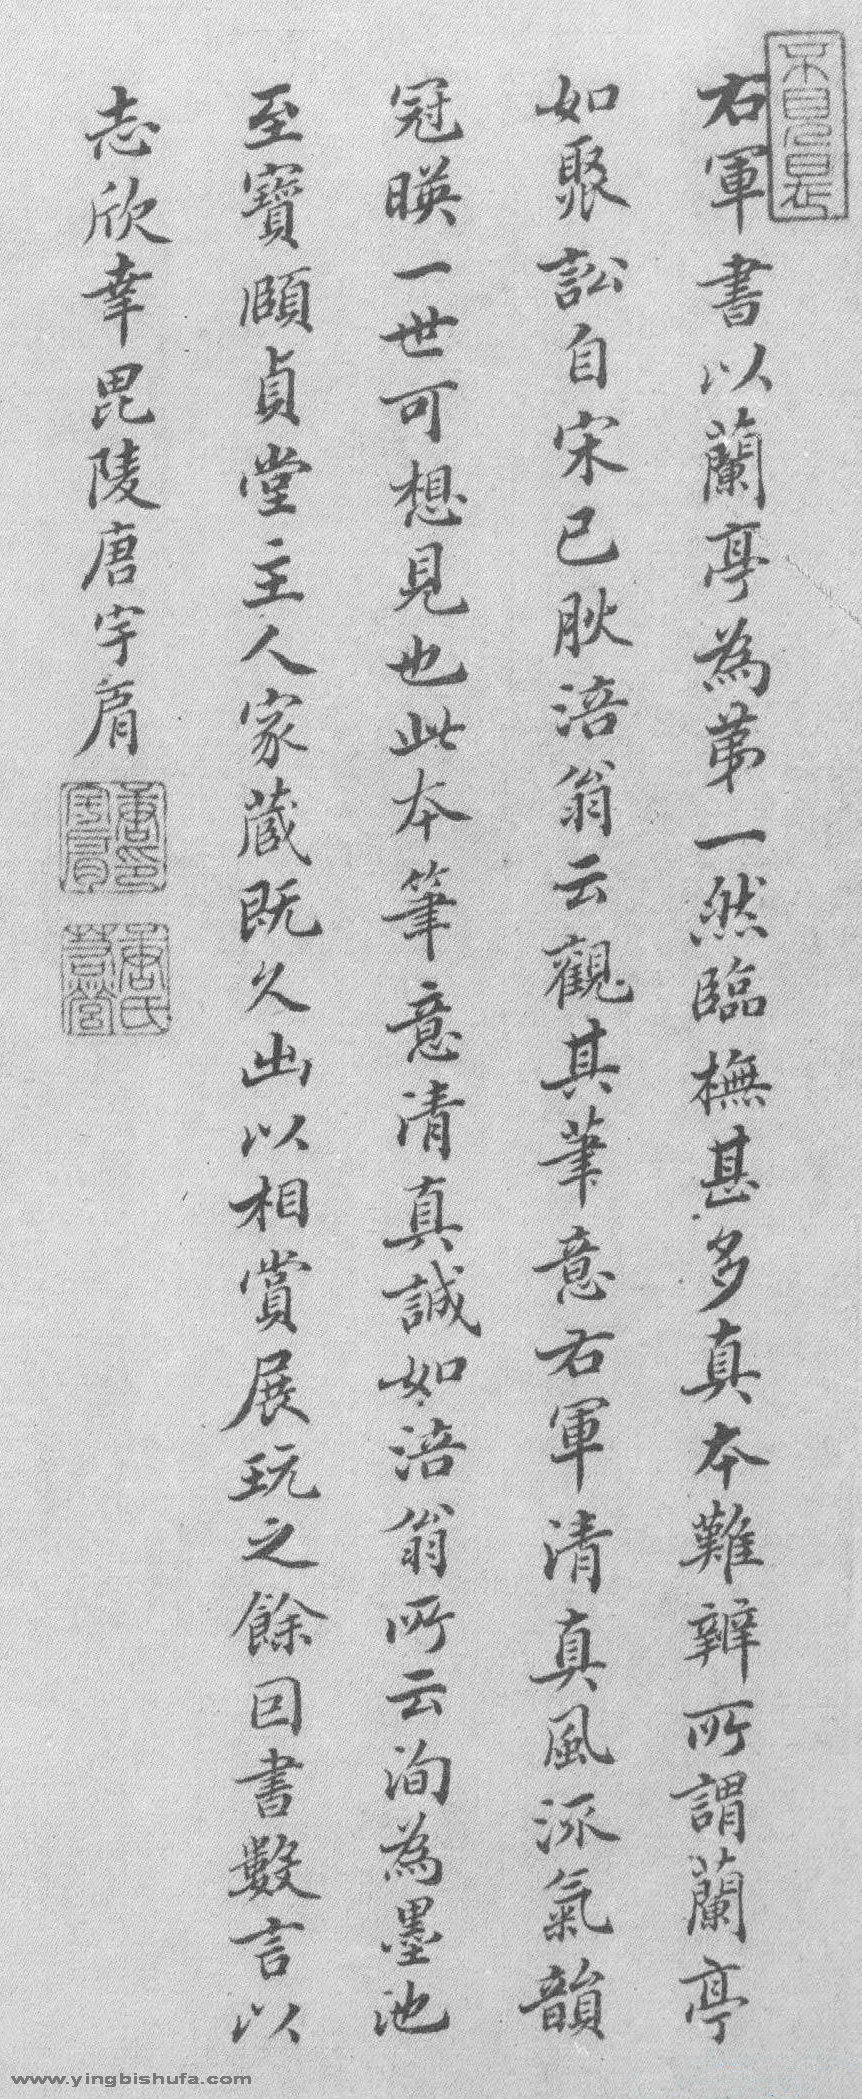 右軍書以蘭亭為第一然臨橅甚多真本難辨所謂蘭亭
如聚訟自宋已肰涪翁云觀其筆意右軍清真風流氣韻
冠暎一世可想見也此本筆意清真誠如涪翁所云洵為墨池
至寶頤貞堂主人家藏既久出以相賞展玩之餘回書數言以
志欣幸毘陵唐宇肩
唐印宇肩
www.yingbishufa.com